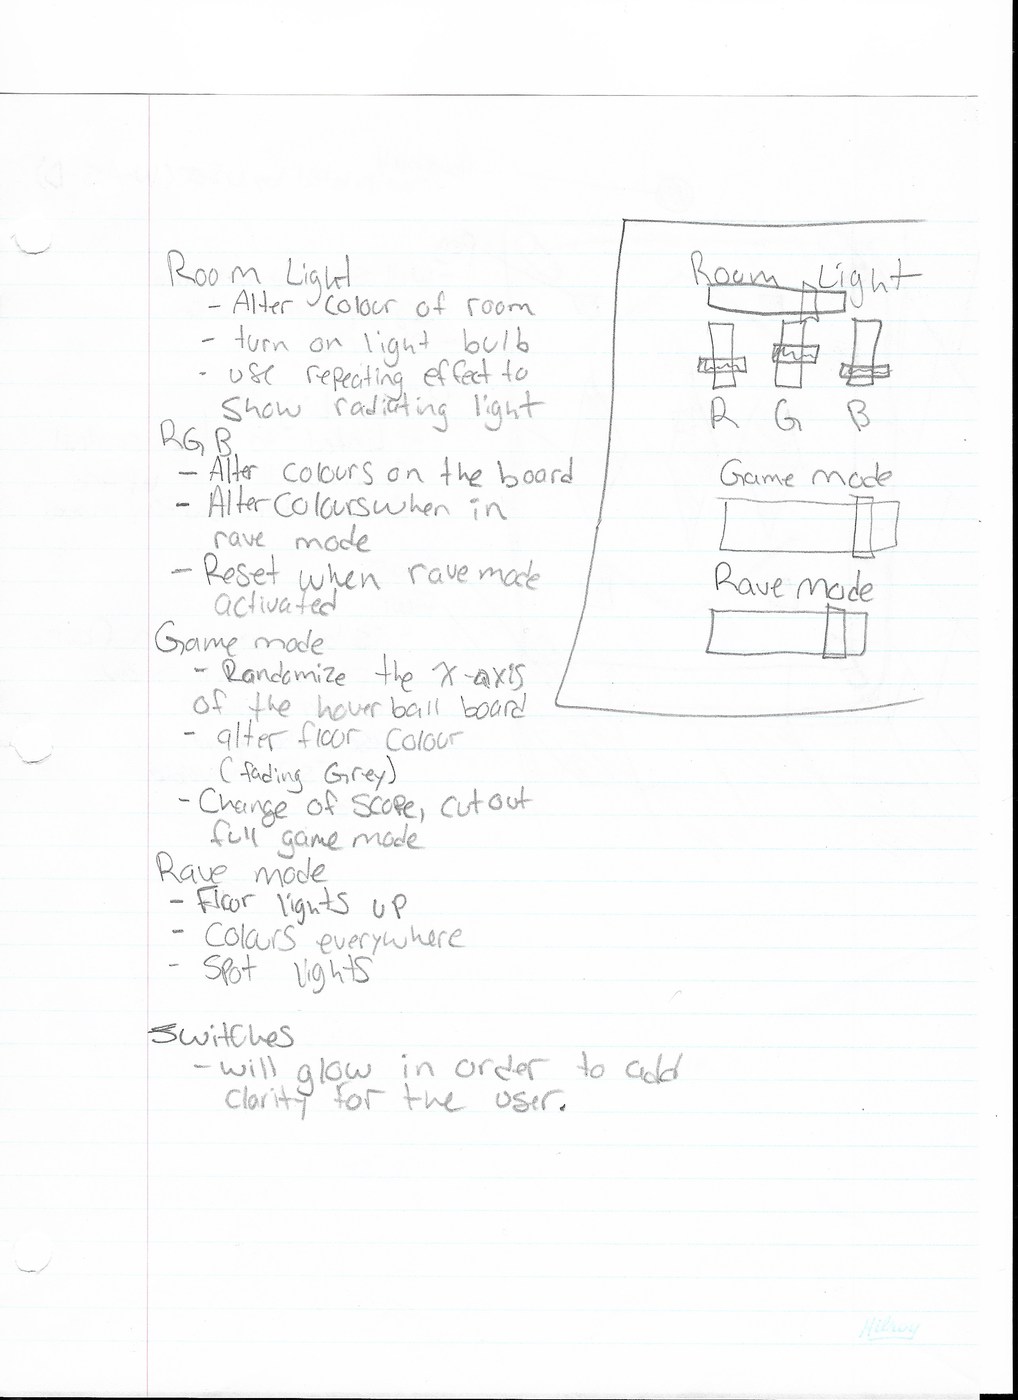 Room Light
- Alter colour of room
- turn on light bulb
- use repeating effect to
show radiating light
RGB
- Alter colours on the board
- Alter Colours when in
rave mode
- Reset when rave mode
activated
Game mode
- Randomize the X-axis
of the hover ball board
- alter floor colour
(fading Grey)
- Change of scope, cut out
full game mode
Rave mode
- Floor lights up
- Colours everywhere
- Spot lights
Switches
- will glow in order to add
clarity for the user.
Room Light
R G B
Game mode
Rave mode
Hilroy